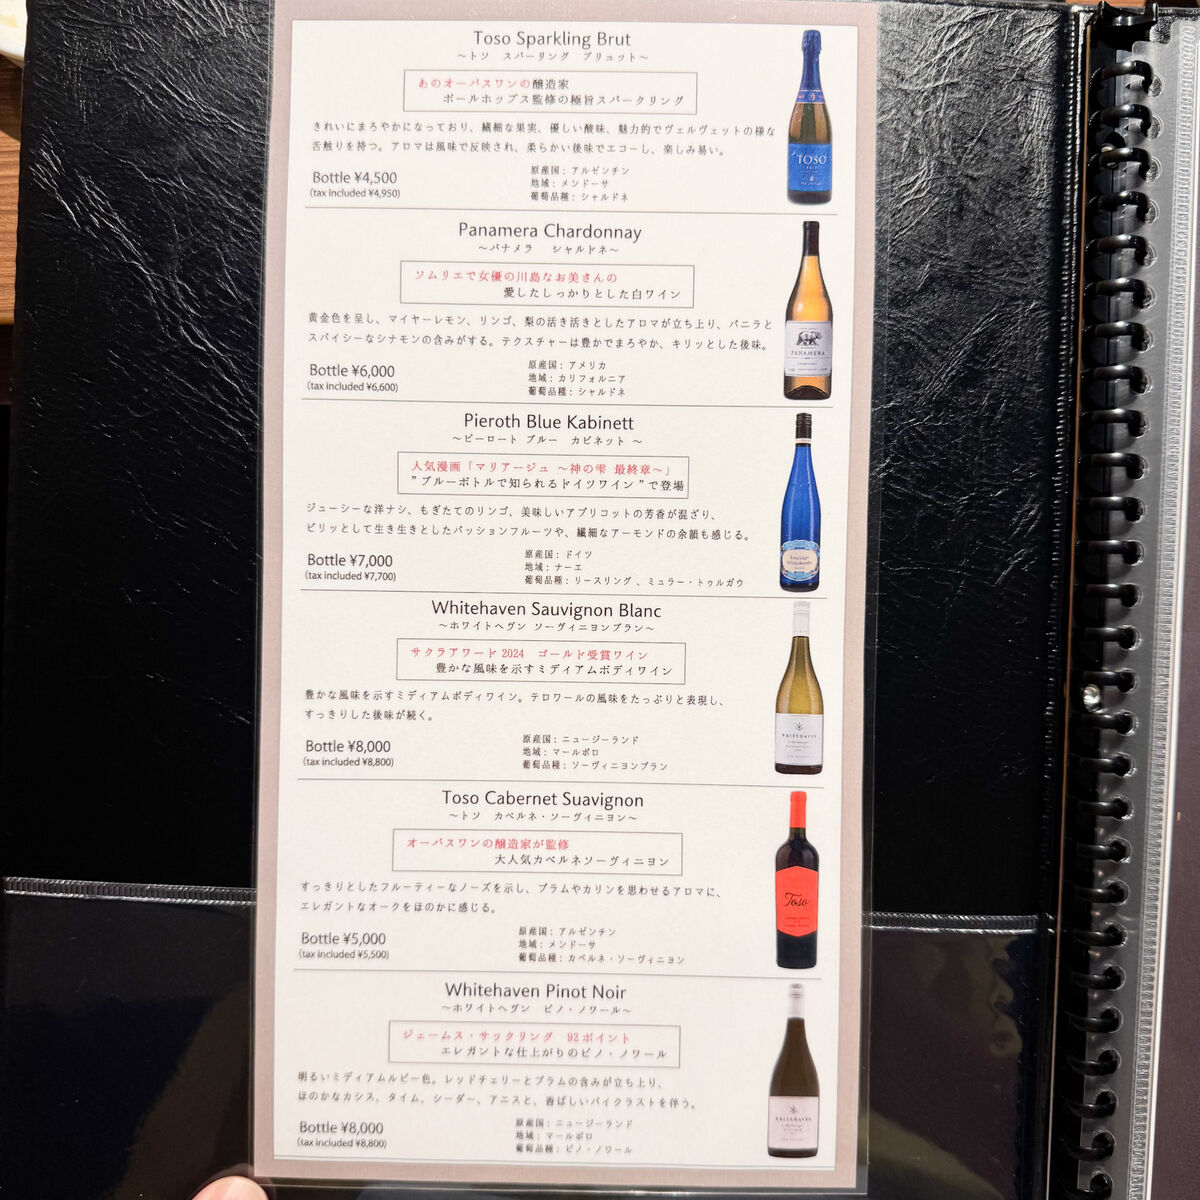 Toso Sparkling Brut
～トソ スパーリング ブリュット～
あのオーパスワンの醸造家
ポールホッブス監修の極旨スパークリング
きれいにまろやかになっており、繊細な果実、優しい酸味、魅力的でヴェルヴェットの様な
舌触りを持つ。アロマは風味で反映され、柔らかい後味でエコーし、楽しみ易い。
Bottle ¥4,500
(tax included ¥4,950)
原産国：アルゼンチン
地域：メンドーサ
葡萄品種：シャルドネ
TOSO
Panamera Chardonnay
～パナメラ シャルドネ～
ソムリエで女優の川島なお美さんの
愛したしっかりとした白ワイン
黄金色を呈し、マイヤーレモン、リンゴ、梨の活き活きとしたアロマが立ち上り、バニラと
スパイシーなシナモンの含みがする。テクスチャーは豊かでまろやか、キリッとした後味。
Bottle ¥6,000
(tax included ¥6,600)
原産国：アメリカ
地域：カリフォルニア
葡萄品種：シャルドネ
PANAMERA
Pieroth Blue Kabinett
～ピーロート ブルー カビネット ～
人気漫画「マリアージュ ～神の雫 最終章～」
”ブルーボトルで知られるドイツワイン”で登場
ジューシーな洋ナシ、もぎたてのリンゴ、美味しいアプリコットの芳香が混ざり、
ピリッとして生き生きとしたパッションフルーツや、繊細なアーモンドの余韻も感じる。
Bottle ¥7,000
(tax included ¥7,700)
原産国：ドイツ
地域：ナーエ
葡萄品種：リースリング 、ミュラー・トゥルガウ
Whitehaven Sauvignon Blanc
～ホワイトヘヴン ソーヴィニヨンブラン～
サクラアワード 2024 ゴールド受賞ワイン
豊かな風味を示すミディアムボディワイン
豊かな風味を示すミディアムボディワイン。テロワールの風味をたっぷりと表現し、
すっきりした後味が続く。
Bottle ¥8,000
(tax included ¥8,800)
原産国：ニュージーランド
地域：マールボロ
葡萄品種：ソーヴィニヨンブラン
WHITEHAVEN
Toso Cabernet Suavignon
～トソ カベルネ・ソーヴィニヨン～
オーパスワンの醸造家が監修
大人気カベルネソーヴィニヨン
すっきりとしたフルーティーなノーズを示し、プラムやカリンを思わせるアロマに、
エレガントなオークをほのかに感じる。
Bottle ¥5,000
(tax included ¥5,500)
原産国：アルゼンチン
地域：メンドーサ
葡萄品種：カベルネ・ソーヴィニヨン
Toso
Whitehaven Pinot Noir
～ホワイトヘヴン ピノ・ノワール～
ジェームス・サックリング 92ポイント
エレガントな仕上がりのピノ・ノワール
明るいミディアムルビー色。レッドチェリーとプラムの含みが立ち上り、
ほのかなカシス、タイム、シーダー、アニスと、香ばしいパイクラストを伴う。
Bottle ¥8,000
(tax included ¥8,800)
原産国：ニュージーランド
地域：マールボロ
葡萄品種：ピノ・ノワール
WHITEHAVEN